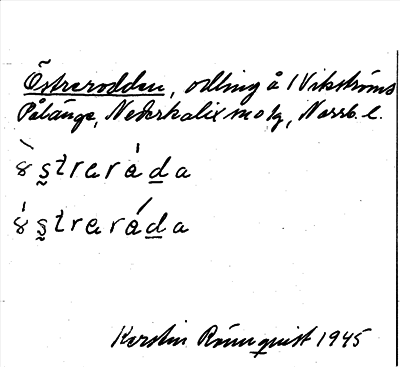 Östrerodden, odling å 1 Vikströms
Pålänge, Nederkalix m o lg, Norrb. l.
ȣ̀s̰trerȧda
ȣ́s̰treráda
Kerstin Rönnquist 1945